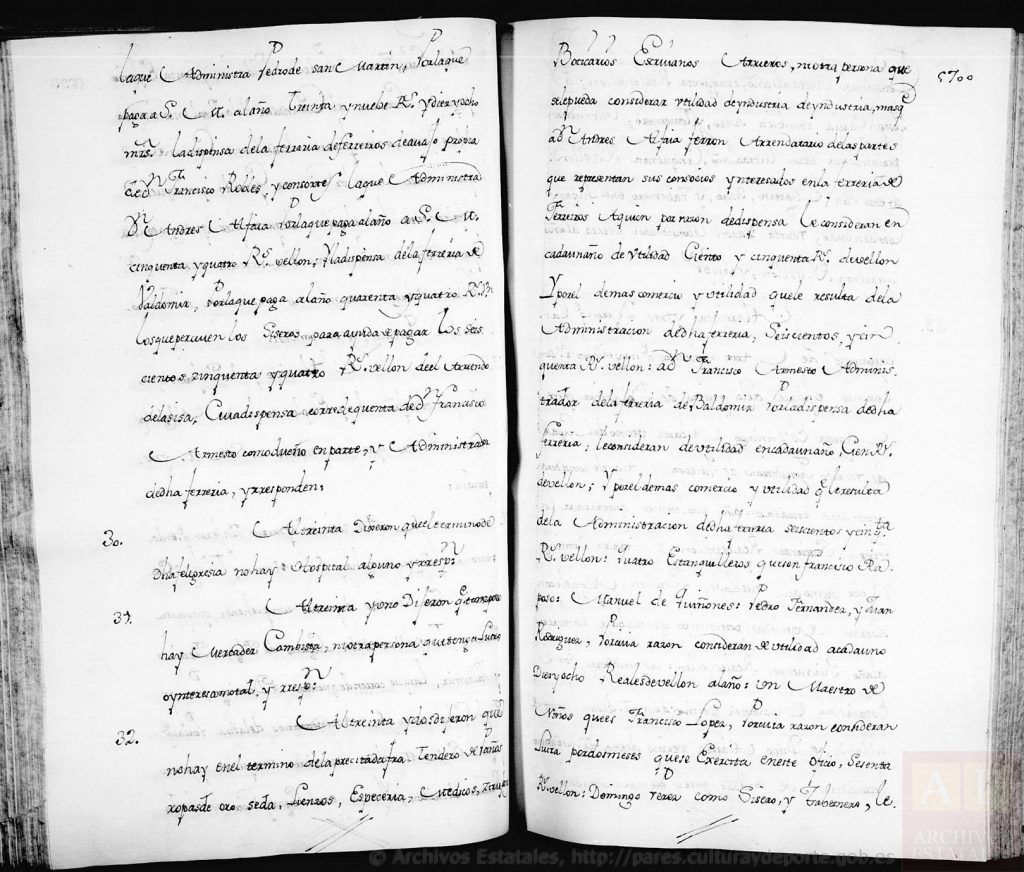 laque Administra Pedrode san Martin, Porlaque
paga a S. M. al año Treinta ynuebe Rs. ydiez yocho
mrs. ladispensa dela ferreria deferreiros deavajo propia
de Dn. Francisco Robles, y consortes laque Administra
Dn. Andres Alfaia Porlaque paga alaño a S. M.
cinquenta yquatro Rs. vellon; Yladispensa dela ferreria de
Valdomia, Porlaque paga alaño quarenta yquatro Rs. Vn.
losqueperciven los Siseros para ayuda de pagar los seis
cientos cinquenta yquatro Rs. vellon deel Arriendo
delasisa, Cuiadispensa corre de quenta de Dn. Francisco
Armesto comodueño enparte, y Administrador
dedha ferreria, yrresponden;
30. Altreinta Dixeron queel termino de
Dha feligresia nohay Hospital alguno yrresp.n
31. Altreinta yuno Dijeron q.e tampoco
hay Mercader Cambista, niotrapersona quetenga Lucro
oynteres comotal, y rresp.n
32. Altreinta ydosdijeron que
nohay enel termino dela precitada fra. Tendero de Paños
ropasde oro seda, Lienzos, Especeria, Medicos,
5700
Boticarios Escrivanos Arrieros, niotra persona que
selepueda considerar vtilidad deyndustria deyndustria, masq.e
a Dn. Andres Alfaia ferron Arrendatario delaspartes
que representan sus consocios ynteresados enla ferreria de
Ferreiros Aquien por razon dedispensa le consideran en
cadaunaño de Vtilidad Ciento y cinquenta Rs. devellon
Yporel demas comercio y vtilidad quele resulta dela
Administracion dedha ferreria, Seiscientos, ycin
quenta Rs. vellon: a Dn. Francisco Armesto Adminis-
trador dela ferreria de Baldomia Porladispensa dedha
ferreria; leconsideran devtilidad encadaunaño, Cien Rs.
devellon; Yporeldemas comercio yvtilidad q.e leresulta
dela Administracion dedha ferreria seiscientos ycinq.ta
Rs. vellon: Quatro Estanquilleros queson Francisco Ra
poso: Manuel de Quiñones: Pedro Fernandez, y Juan
Rodriguez, Porcuia razon consideran de vtilidad acadauno
Diezyocho Realesdevellon alaño: Un Maestro de
Niños quees Francisco Lopez, Porcuia razon consideran
pordosmeses quese Exercita eneste Oficio, Sesenta
Rs. vellon: Domingo Perez como Sisero, y Tabernero, le
© Archivos Estatales, http://pares.culturaydeporte.gob.es
ARCHIVOS
ESTATALES